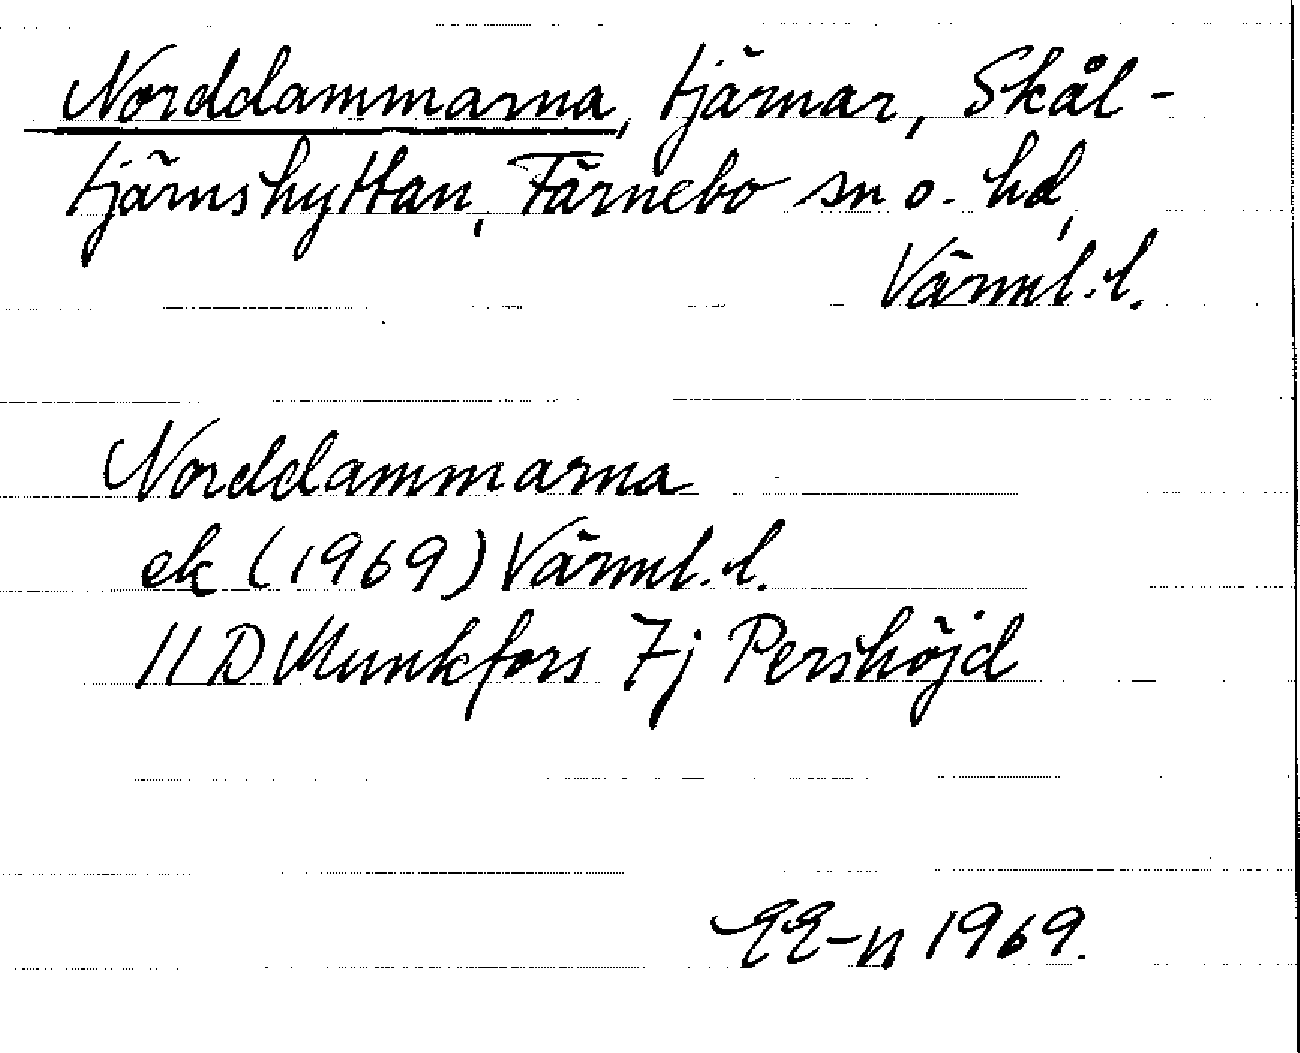 Norddammarna, tjärnar, Skål-
tjärnshyttan, Färnebo sn o. hd,
Värml. l.
Norddammarna
ek (1969) Värml. l.
11 D Munkfors 7j Pershöjd
EE-n 1969.